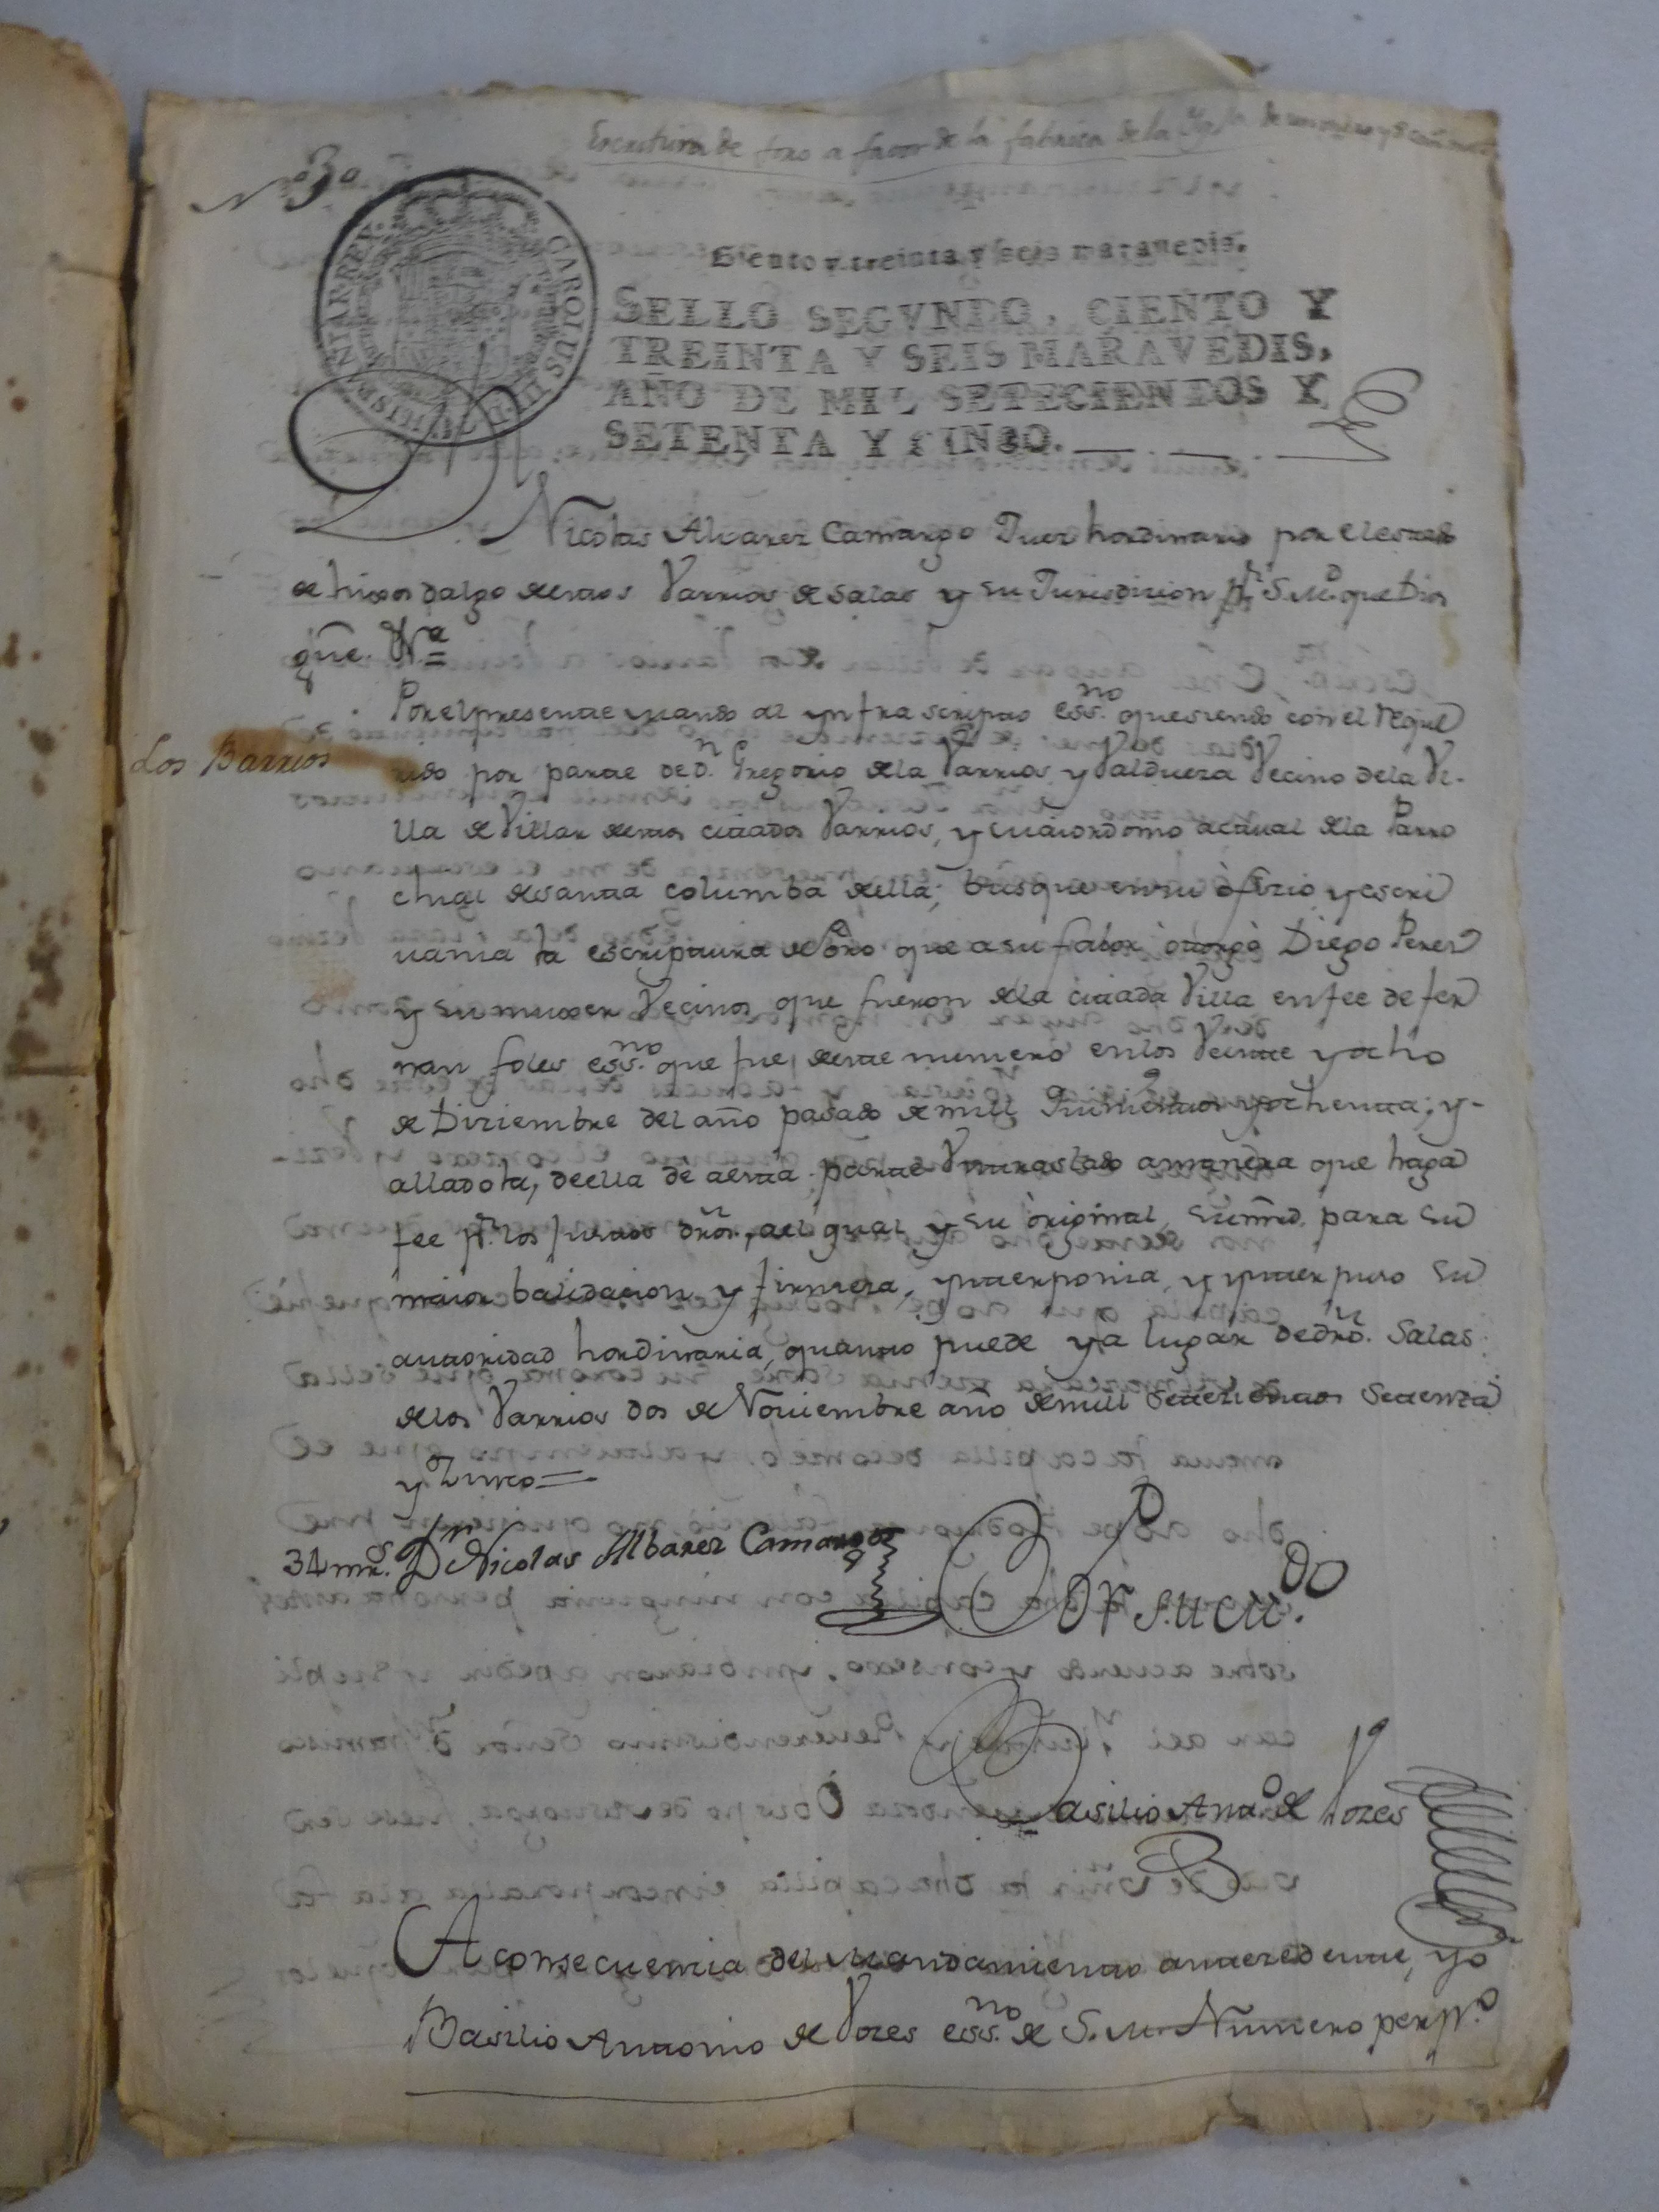 Escritura de foro a favor de la fabrica de la Ygla. de
N.º 3º
CAROLUS III D G HISPANIAR REX
Siento y treinta y seis maravedis.
SELLO SEGVNDO, CIENTO Y
TREINTA Y SEIS MARAVEDIS,
AÑO DE MIL SETECIENTOS Y
SETENTA Y CINCO.
Dn Nicolas Alvarez Camargo Juez hordinario por el estado
de hixos dalgo destos Varrios de Salas y su Jurisdicion pr. S.M. que Dios
gûe. Wª =
Por el presente mando al ynfra scripto essno. que siendo con el reque
Los Barrios
rido por parte de Dn. Gregorio de la Varrios y Valdueza Vecino de la Vi-
lla de Villar destos citados Varrios, y maiordomo actual de la Parro
chial de santa columba de ella; busque en su ofizio y escri
uania la escriptura de foro que a su fabor otorgò Diego Perez
y su muxer Vecinos que fueron de la citada Villa en fee de fer
nan foles essno. que fue, deste numero en los Veinte y ocho
de Diziembre del año pasado de mill Quinientos y ochenta; y-
alladola, de ella de a esta parte Vn traslado a manera que haga
fee pr. los puestos drôs., a el qual y su original, su mrd. para su
maior balidacion y firmeza, ynterponia, y ynterpuso su
autoridad hordinaria, quanto puede y a lugar de drô. Salas
de los Varrios dos de Nouiembre año de mill Setezientos Setenta
y Zinco=
34 mrs. Dn Nicolas Albarez Camargo
Por su Mdo.
Basilio Anto. de Vozes
A consecuencia del Mandamiento antezedente, yo
Basilio Antonio de Vozes essno. de S.M. Numero perpº.